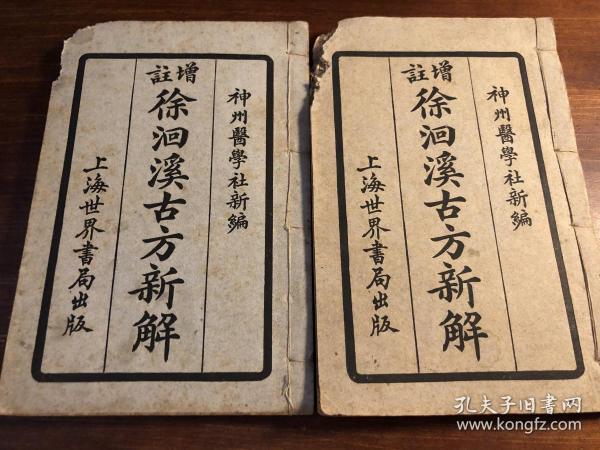 神州醫學社新編
增註
徐洄溪古方新解
上海世界書局出版
神州醫學社新編
增註
徐洄溪古方新解
上海世界書局出版
孔夫子旧書网
www.kongfz.com